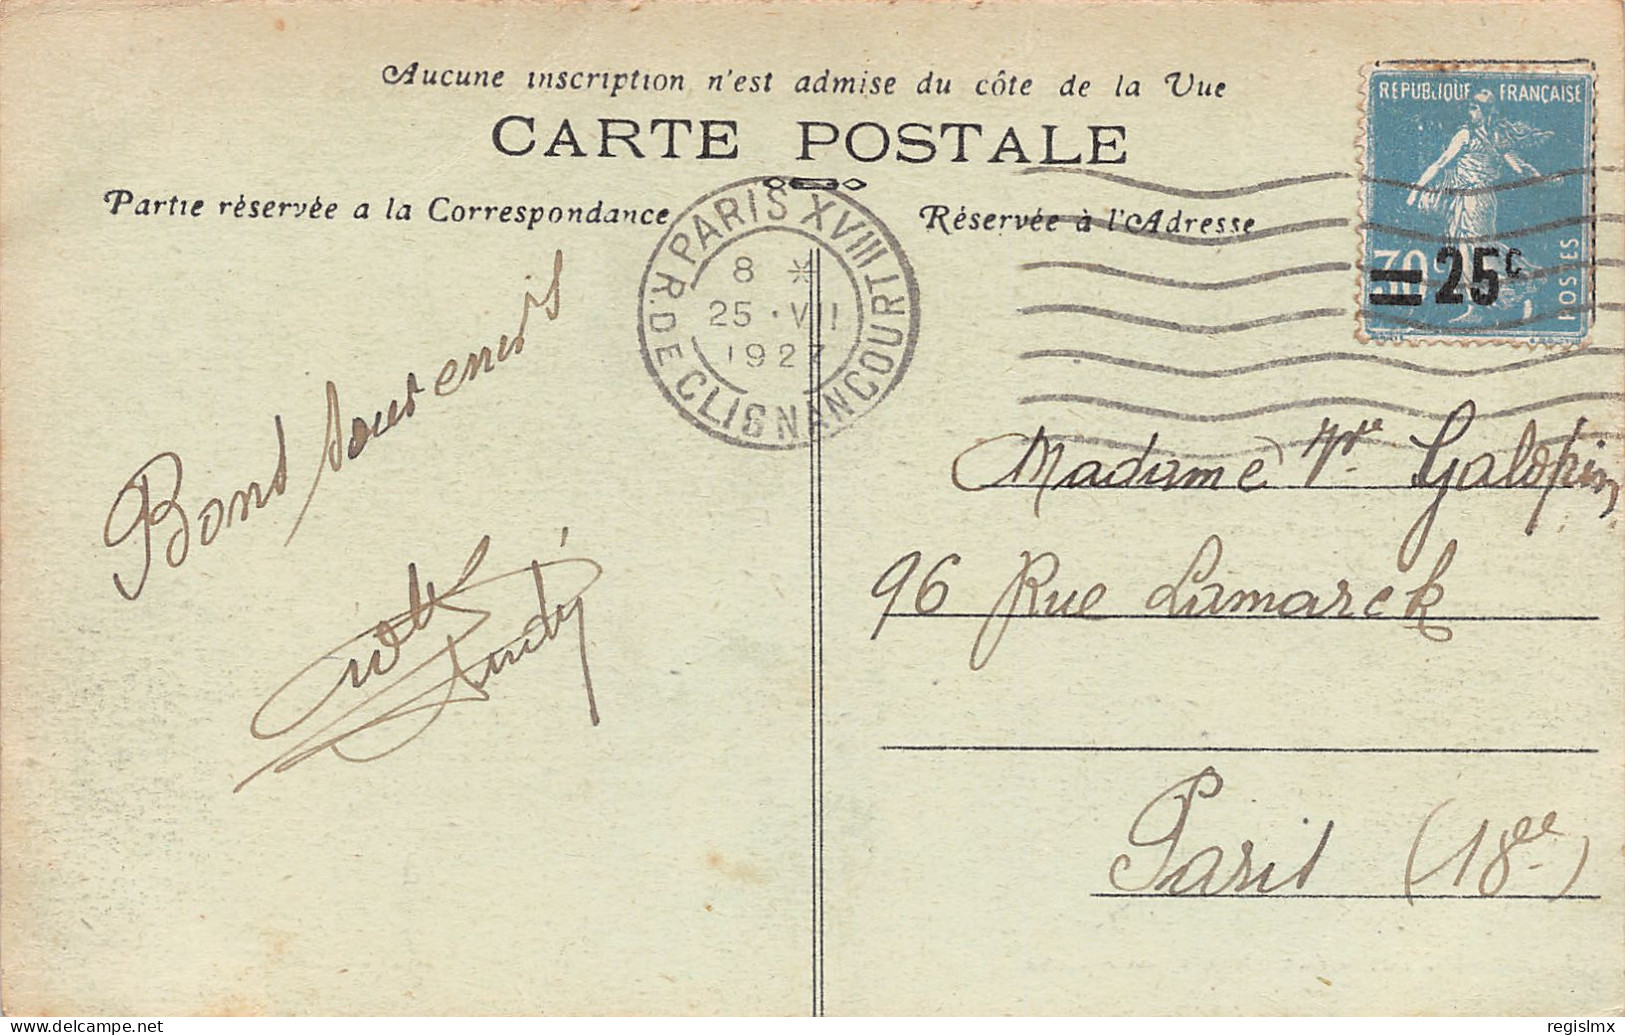 Aucune inscription n'est admise du côte de la Vue
CARTE POSTALE
Partie réservée a la Correspondance
Réservée à l'Adresse
PARIS XVIII
R. DE CLIGNANCOURT
8 *
25 · VII
1927
REPUBLIQUE FRANÇAISE
POSTES
30c
25c
Bons souvenirs
Madame Vve Galopin
96 Rue Lamarck
Paris (18ee)
delcampe.net
regislmx